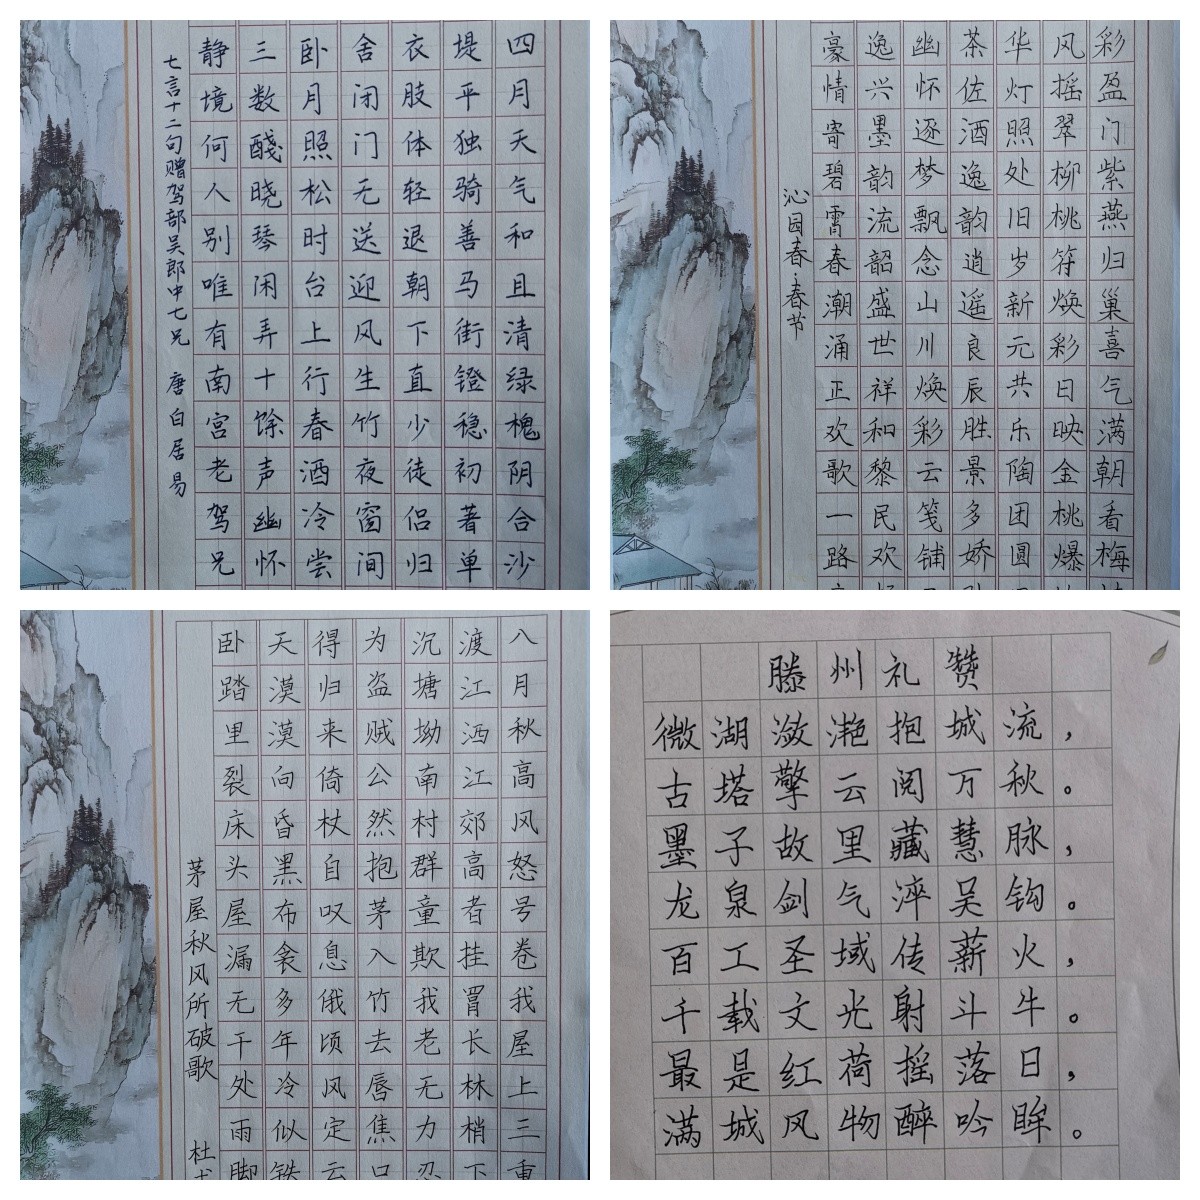 四月天气和且清绿槐阴合沙
堤平独骑善马街镫稳初著单
衣肢体轻退朝下直少徒侣归
舍闭门无送迎风生竹夜窗间
卧月照松时台上行春酒冷尝
三数醆晓琴闲弄十馀声幽怀
静境何人别唯有南宫老驾兄
七言十二句赠驾部吴郎中七兄 唐 白居易
彩盈门紫燕归巢喜气满朝看梅
风摇翠柳桃符焕彩日映金桃爆
华灯照处旧岁新元共乐陶团圆
茶佐酒逸韵逍遥良辰胜景多娇
幽怀逐梦飘念山川焕彩云笺铺
逸兴墨韵流韶盛世祥和黎民欢
豪情寄碧霄春潮涌正欢歌一路
沁园春·春节
八月秋高风怒号卷我屋上三重
渡江洒江郊高者挂罥长林梢下
沉塘坳南村群童欺我老无力忍
为盗贼公然抱茅入竹去唇焦口
得归来倚杖自叹息俄顷风定云
天漠漠向昏黑布衾多年冷似铁
卧踏里裂床头屋漏无干处雨脚
茅屋秋风所破歌 杜
滕州礼赞
微湖潋滟抱城流，
古塔擎云阅万秋。
墨子故里藏慧脉，
龙泉剑气淬吴钩。
百工圣域传薪火，
千载文光射斗牛。
最是红荷摇落日，
满城风物醉吟眸。